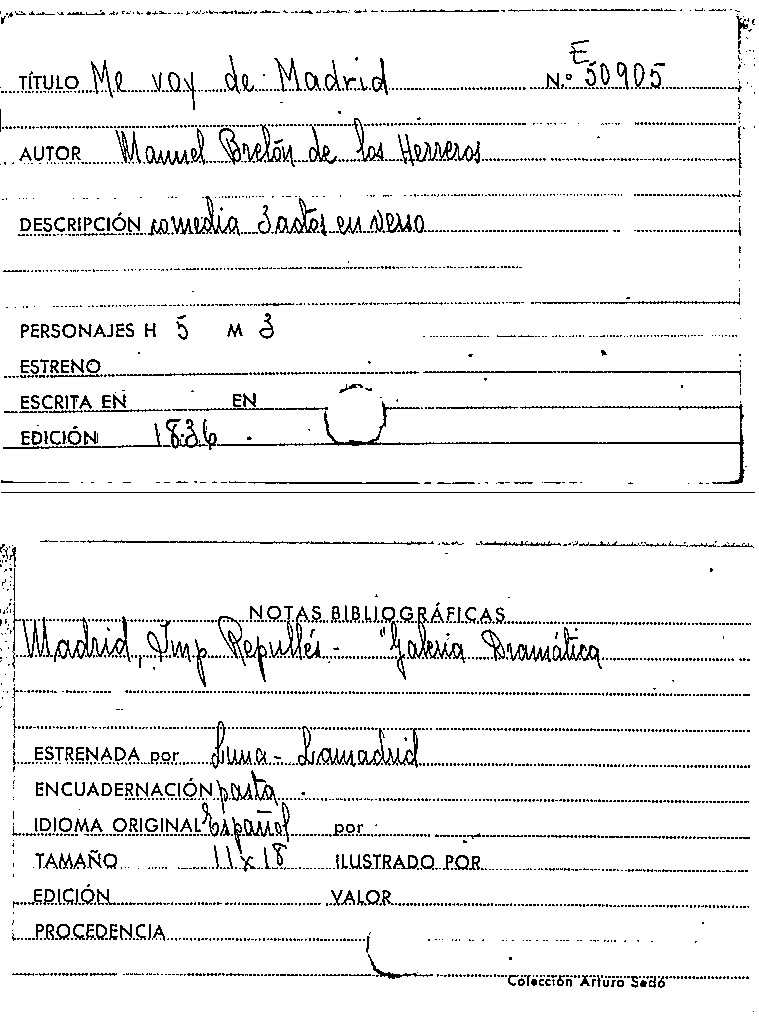 TÍTULO Me voy de Madrid N.º E 50905
AUTOR Manuel Bretón de los Herreros
DESCRIPCIÓN comedia 3 actos en verso
PERSONAJES H 5 M 3
ESTRENO
ESCRITA EN EN
EDICIÓN 1836
NOTAS BIBLIOGRÁFICAS
Madrid, Imp Repullés - "Galeria Dramática
ESTRENADA por Luna - Lamadrid
ENCUADERNACIÓN pasta
IDIOMA ORIGINAL Español por
TAMAÑO 11 x 18 ILUSTRADO POR
EDICIÓN VALOR
PROCEDENCIA
Colección Arturo Sedó